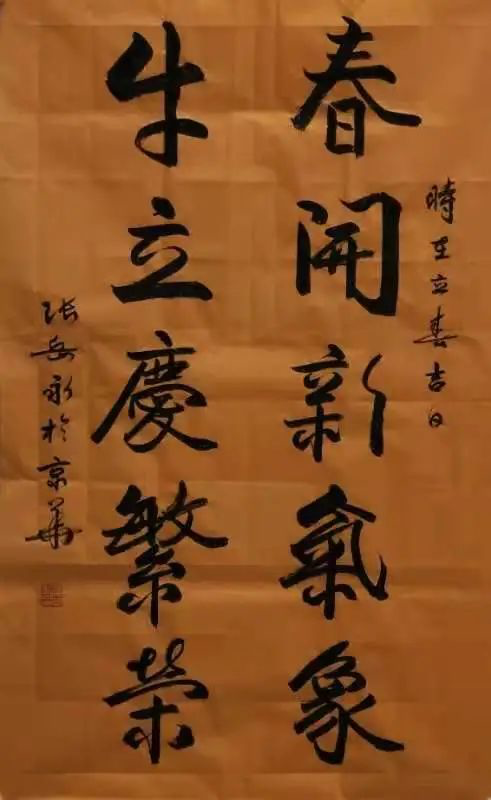 時在立春吉日
春開新氣象
牛立慶繁榮
張岳永於京華